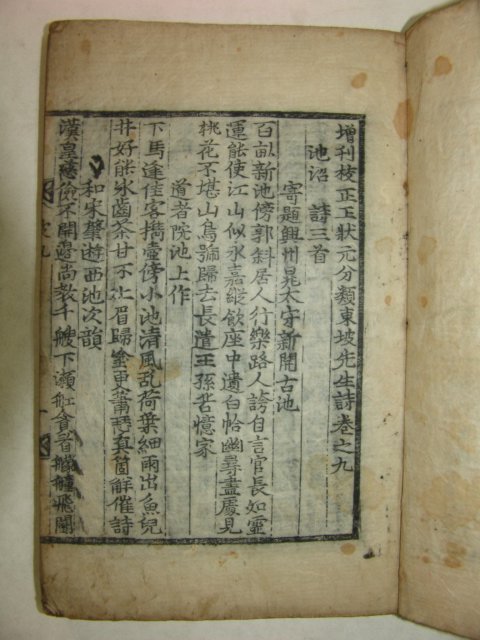 增刊校正王狀元分類東坡先生詩卷之九
池沼 詩三首
寄題興州晁太守新開古池
百畝新池傍郭斜居人行樂路人誇自言官長如靈
運能使江山似永嘉縱飲座中遺白帢幽尋盡處見
桃花不堪山鳥號歸去長遣王孫苦憶家
道者院池上作
下馬逢佳客攜壺傍小池清風乱荷葉細雨出魚兒
井好能氷齒茶甘不上眉歸塗更蕭瑟真箇解催詩
和宋肇遊西池次韻
漢皇慈儉不開邊尚教千艘下瀨舡貪看艨艟飛鬬